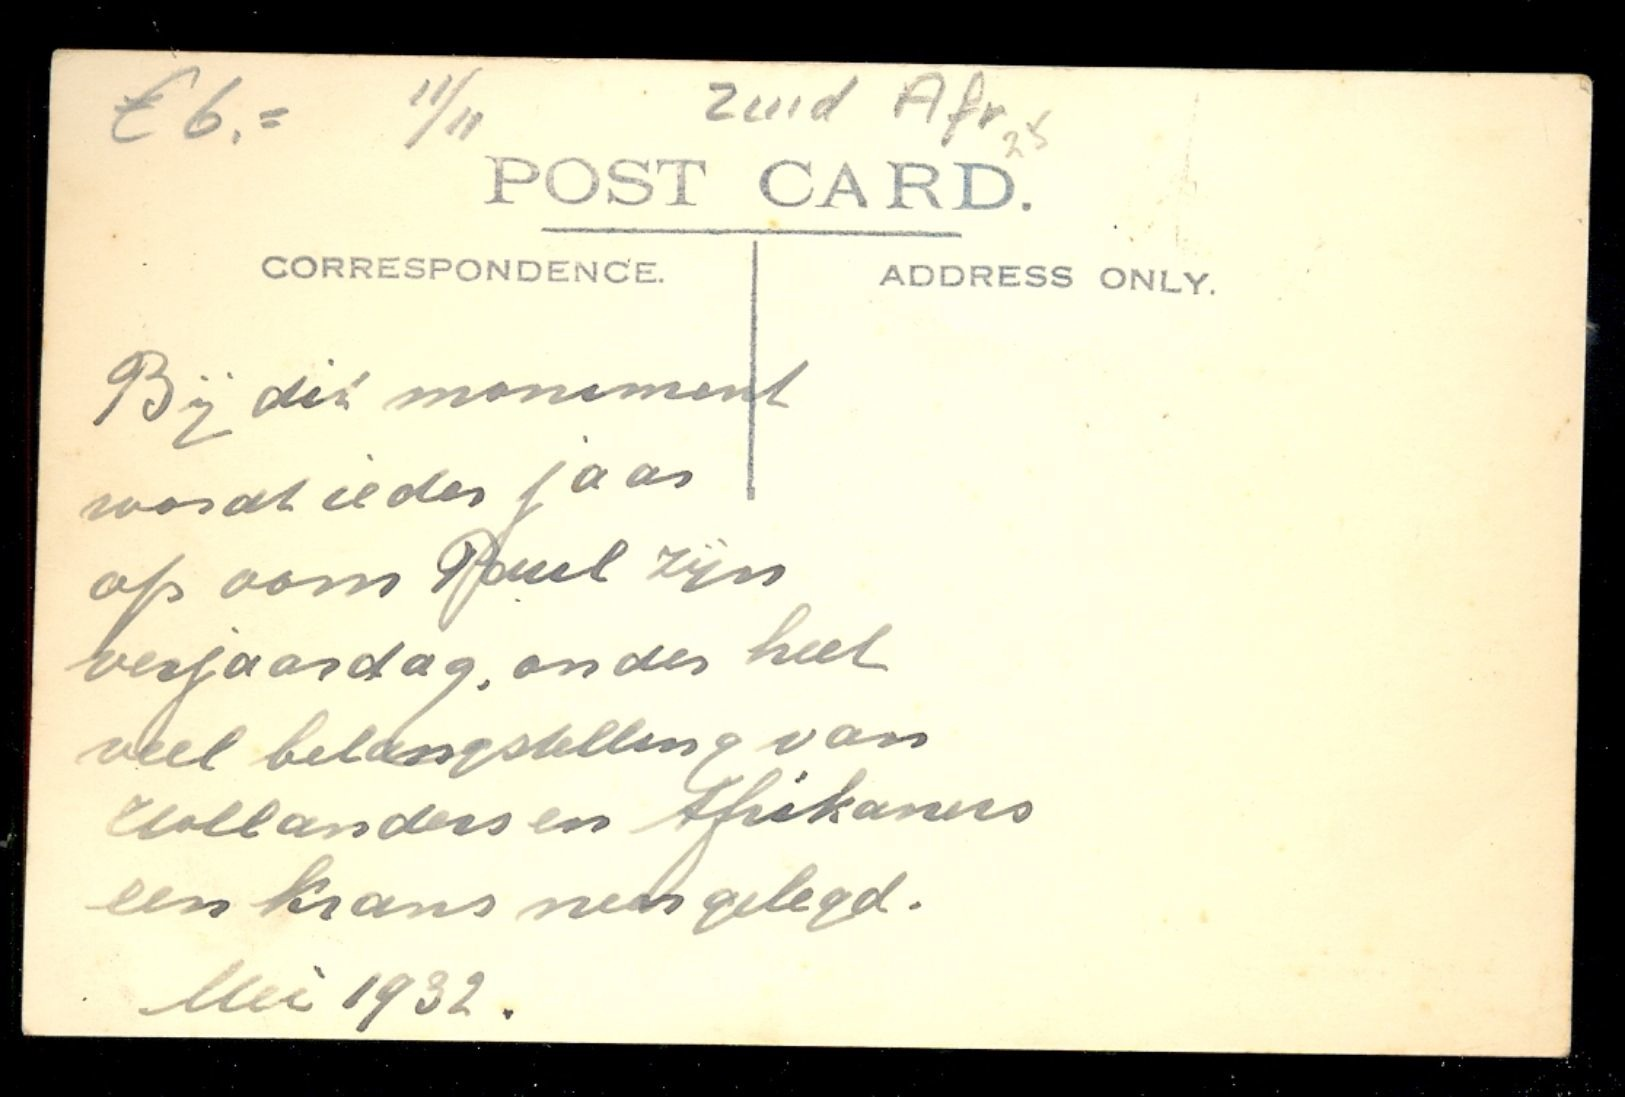 € 6,= 11/11 Zuid Afr.
25
POST CARD.
CORRESPONDENCE.
ADDRESS ONLY.
Bij dit monument
wordt ieder jaar
op oom Paul zijn
verjaardag, onder heel
veel belangstelling van
Hollanders en Afrikaners
een krans neergelegd.
Mei 1932.